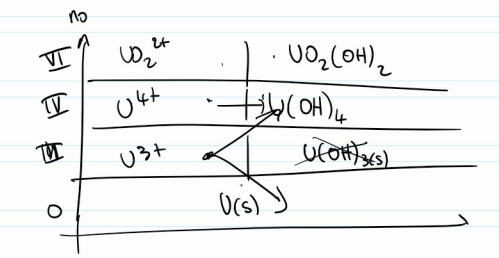 no
VI UO₂²⁺ UO₂(OH)₂
IV U⁴⁺ U(OH)₄
III U³⁺ U(OH)₃(s)
0 U(s)